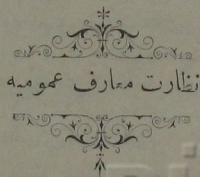 نظارت معارف عمومیه